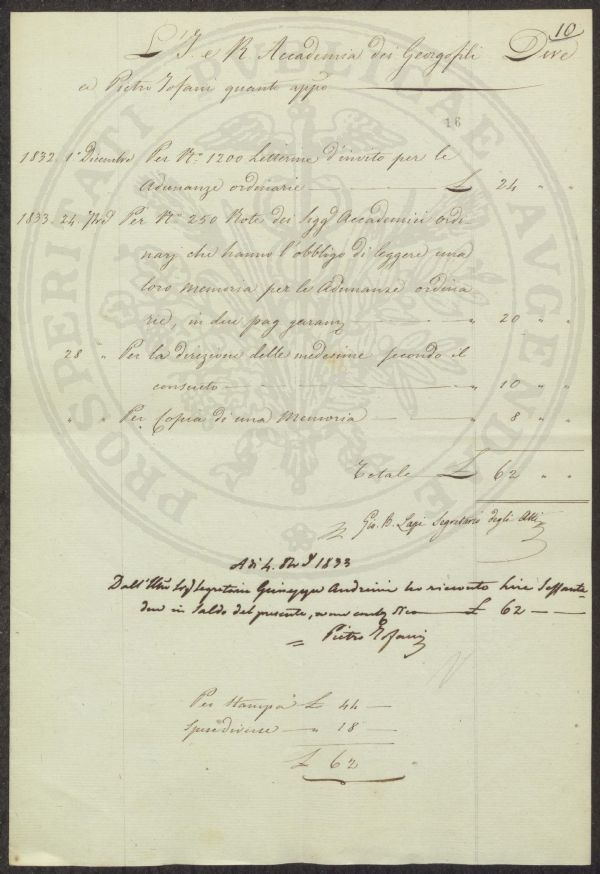 10
L'I. e R. Accademia dei Georgofili Deve
a Pietro Tofani quanto app.o
16
1832. 1.o Dicembre Per N.o 1200 Letterine d'invito per le
Adunanze ordinarie £ 24 " "
1833. 24. Per N.o 250 Note dei Sigg.i Accademici ordi
narj che hanno l'obbligo di leggere una
loro memoria per le Adunanze ordina
rie, in due pag " 20 " "
28 " Per la direzione delle medesime secondo il
consueto " 10 " "
" " Per Copia di una Memoria " 8 " "
Totale £ 62 " "
Gio. B. Lapi Segretario degli Atti
A di 4. 1833
Dall' Ill.mo Sig.r Segretario Giuseppe ho ricevuto Lire Sessanta
due in Saldo del presente, £ 62
Pietro Tofani
Per Stampa £ 44
Spese diverse " 18
£ 62
PROSPERITATI PVBLICAE AVGENDAE